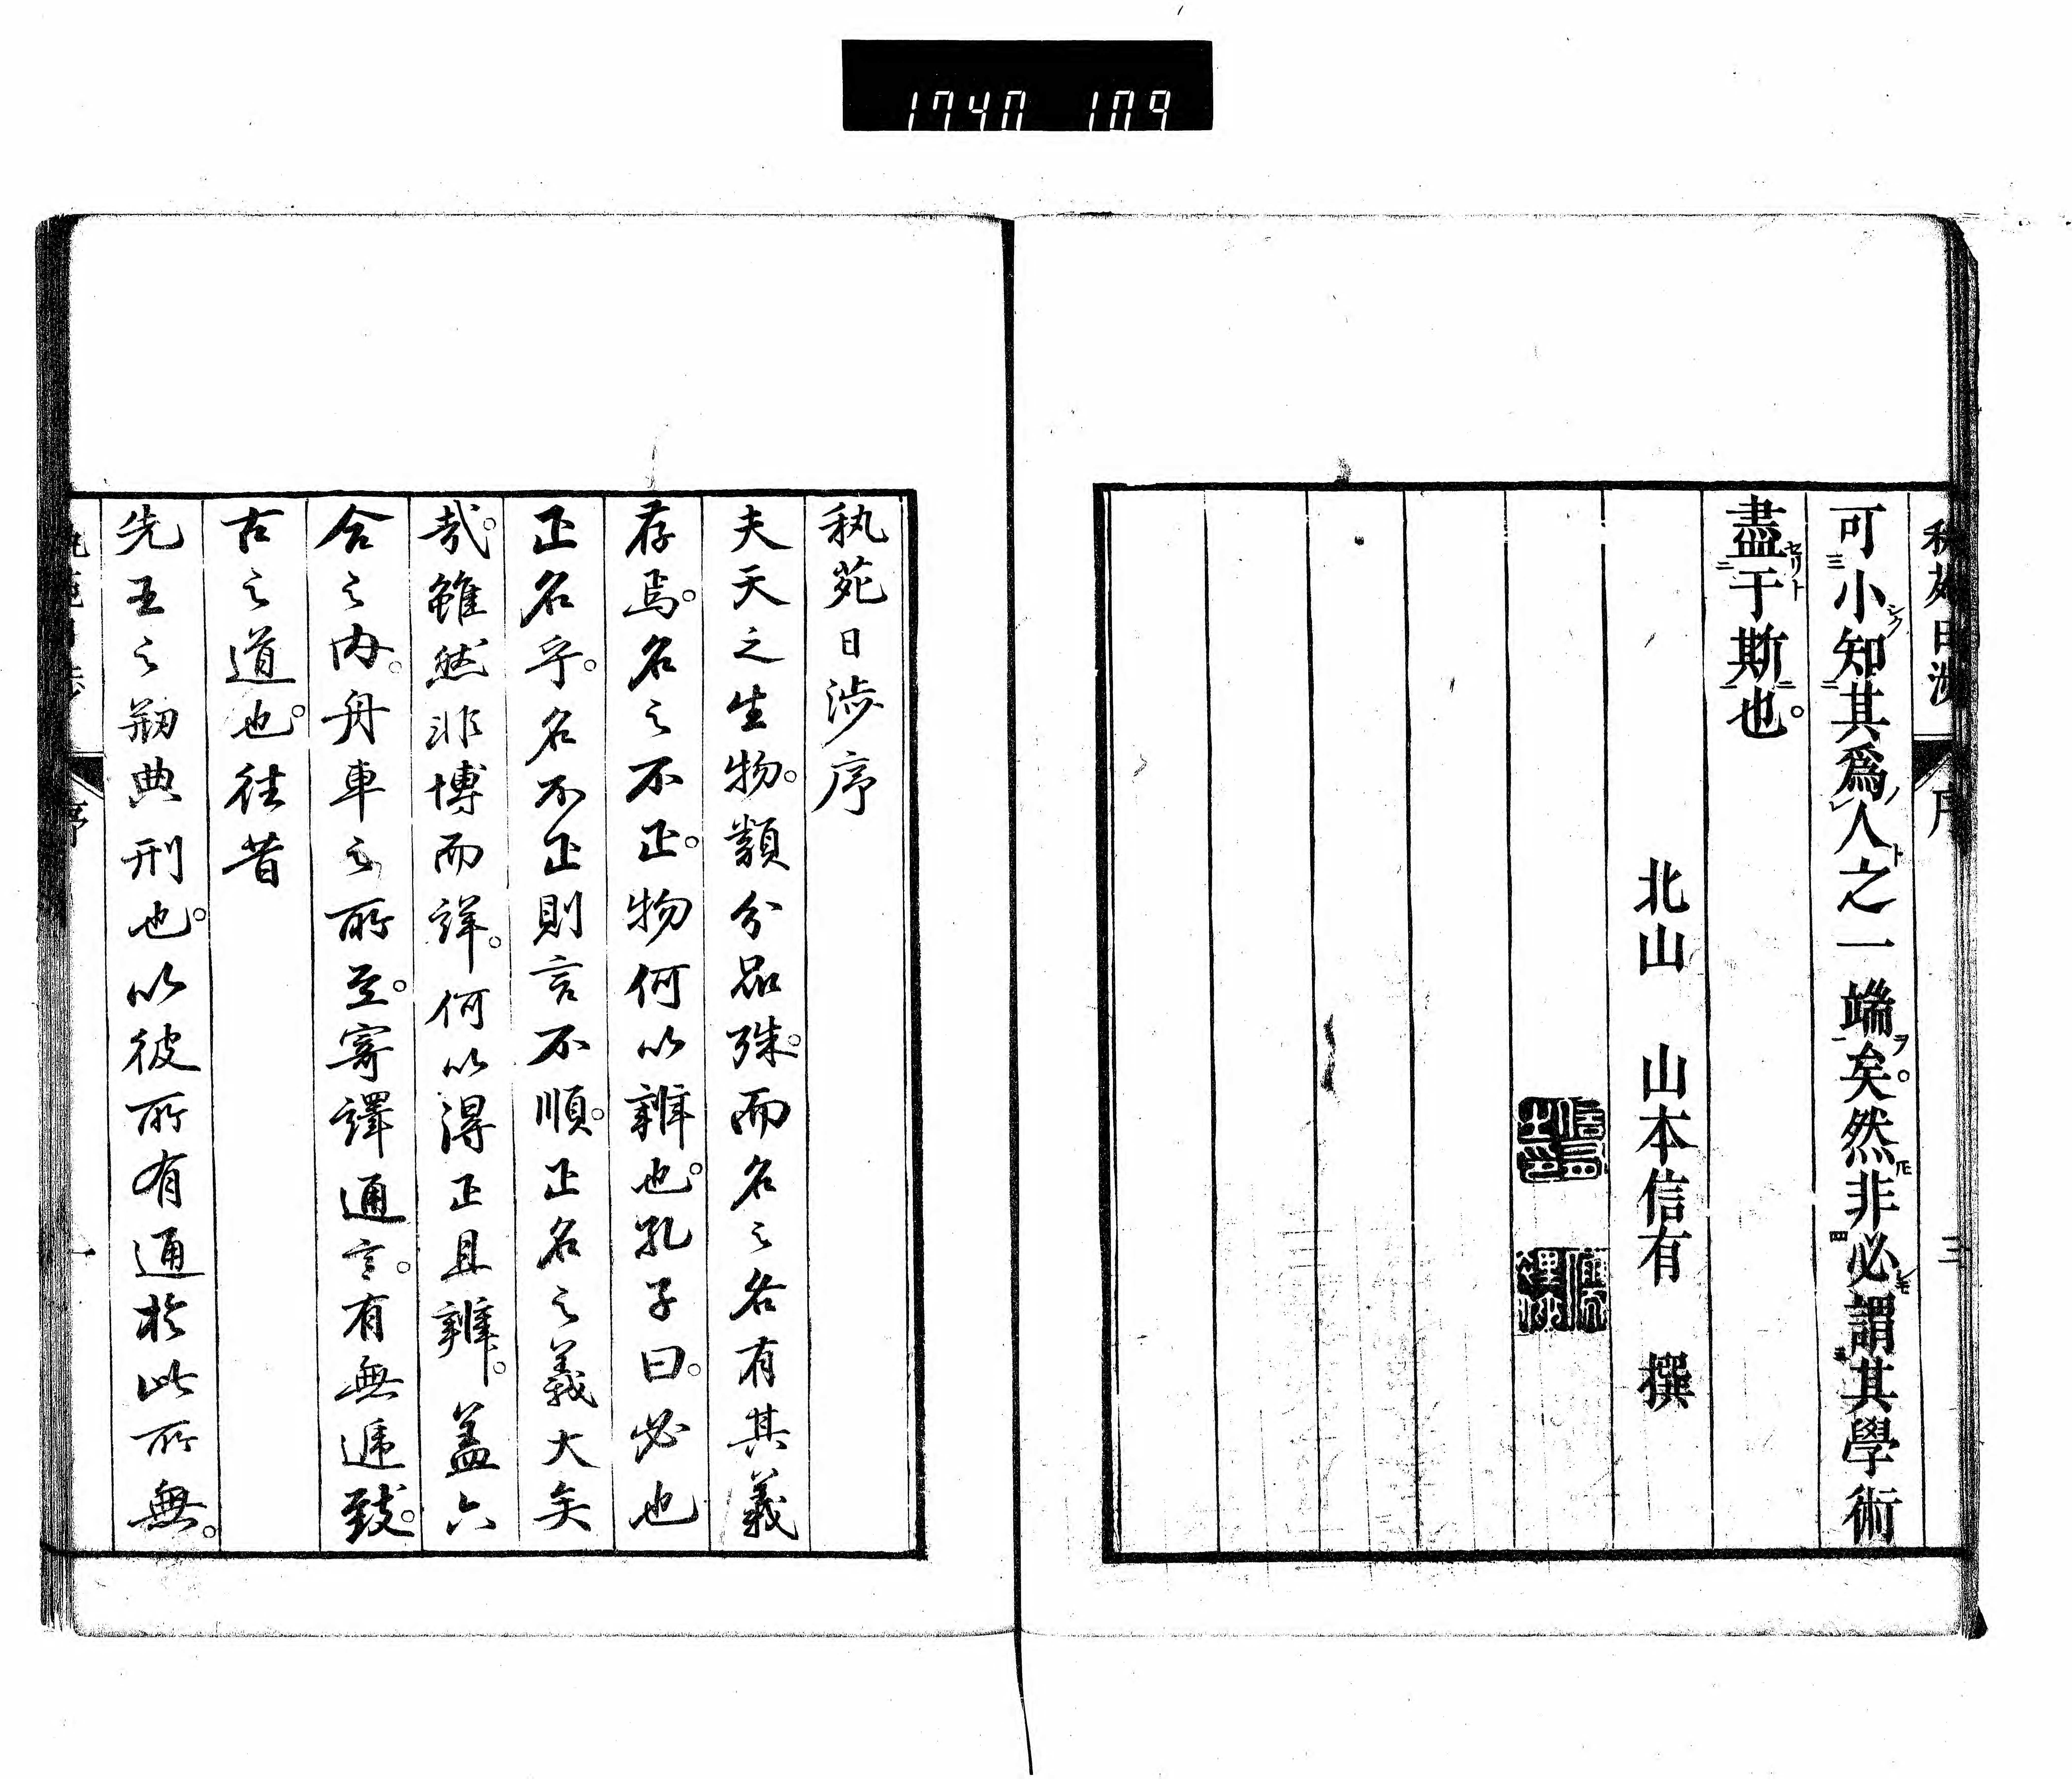 1740 109
秇苑日渉 序 三
可小知其爲人之一端矣。然非必謂其學術
盡于斯也。
北山 山本信有 撰
秇苑日渉序
夫天之生物。類分品殊。而名之各有其義
存焉。名之不正。物何以辨也。孔子曰。必也
正名乎。名不正則言不順。正名之義大矣
哉。雖然非博而詳。何以得正且辨。蓋六
合之内。舟車之所至。寄譯通言。有無遞致。
古之道也。往昔
先王之剏典刑也。以彼所有通於此所無。
序 一